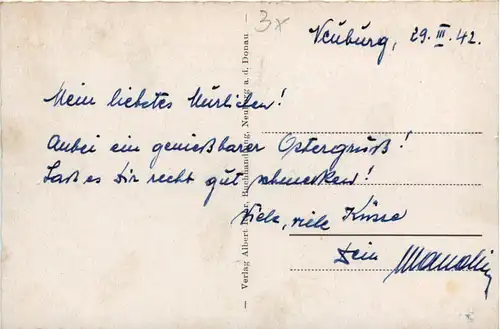 3x
Neuburg, 29. III. 42.
Mein liebstes
Anbei ein genießbarer Ostergruß!
Laß es Dir recht gut schmecken!
Viele, viele Küsse
Dein
— Verlag Albert Buchhandlung, Neuburg a. d. Donau —